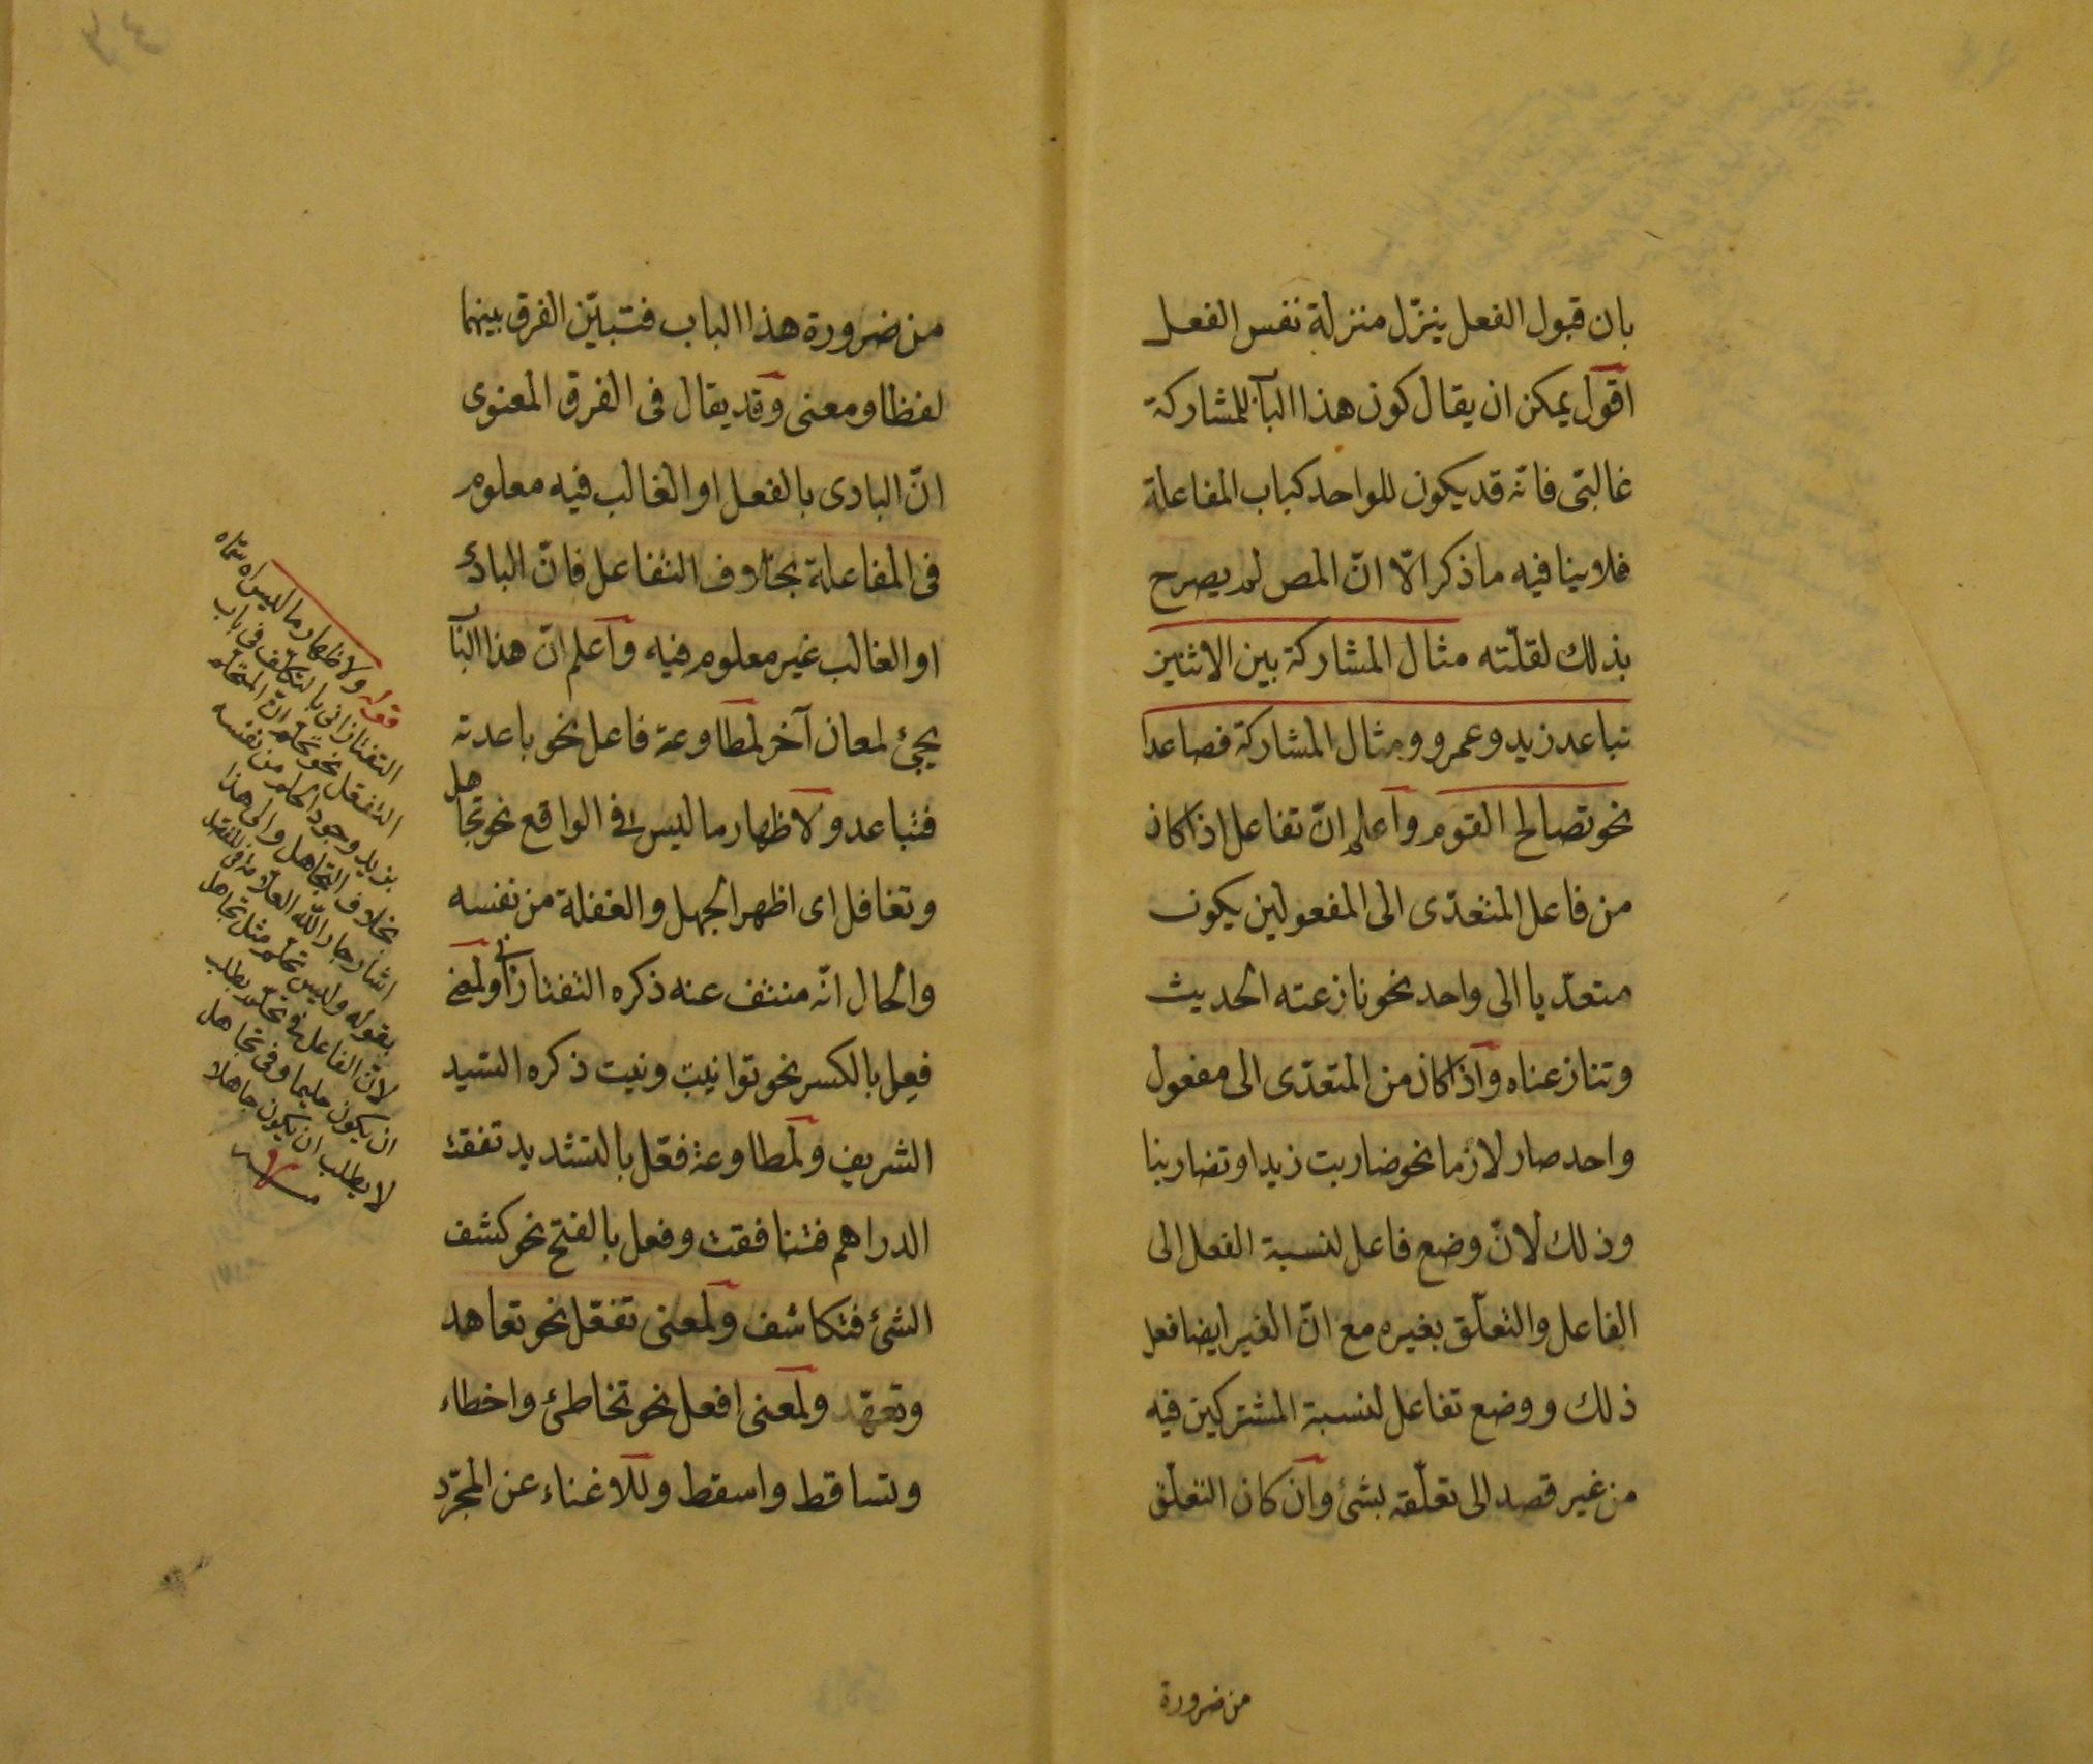 بان قبول الفعل ينزّل منزلة نفس الفعل
اقول يمكن ان يقال كون هذا البآ للمشاركة
غالبتى فانه قد يكون للواحد كباب المفاعلة
فلا ينافيه ما ذكر الّا انّ المص لم يصرح
بذلك لقلّته مثال المشاركة بين الاثنين
تباعد زيد وعمرو ومثال المشاركة فصاعدا
نحو تصالح القوم واعلم انّ تفاعل اذا كان
من فاعل المتعدّى الى المفعولين يكون
متعدّيا الى واحد نحو نازعته الحديث
وتنازعناه واذا كان من المتعدّى الى مفعول
واحد صار لازما نحو ضاربت زيدا وتضاربنا
وذلك لانّ وضع فاعل لنسبة الفعل الى
الفاعل والتعلّق بغيره مع انّ الغير ايضا فعل
ذلك ووضع تفاعل لنسبة المشتركين فيه
من غير قصد الى تعلّقه بشئ وان كان التعلّق
من ضرورة
من ضرورة هذا الباب فتبيّن الفرق بينهما
لفظا ومعنى وقد يقال فى الفرق المعنوى
انّ البادى بالفعل او الغالب فيه معلوم
فى المفاعلة بخلاف التفاعل فانّ البادئ
او الغالب غير معلوم فيه واعلم انّ هذا البآ
يجئ لمعان آخر لمطاوعة فاعل نحو باعدته
فتباعد ولاظهار ما ليس فى الواقع نحو تجاهل
وتغافل اى اظهر الجهل والغفلة من نفسه
والحال انّه منتف عنه ذكره التفتازانى ولمعنى
فعِل بالكسر نحو توانيت ونيت ذكره السّيد
الشريف ولمطاوعة فعّل بالتشديد تفقت
الدراهم فتنافقت وفعل بالفتح نحو كشف
الشئ فتكاشف ولمعنى تفعّل نحو تعاهد
وتعهّد ولمعنى افعل نحو تخاطئ واخطاء
وتساقط واسقط وللاغناء عن المجرّد
قوله ولاظهار ما ليس اه سماه
التفتازانى بالتكلّف فى باب
التفعّل نحو تحلّم انّ المتحلّم
يريد وجود الحلم من نفسه
بخلاف التجاهل والى هذا
اشار جار اللّه العلّامة فى المفصّل
بقوله وليس تحلّم مثل تجاهل
لانّ الفاعل فى تحلّم يطلب
ان يكون حليما وفى تجاهل
لا يطلب ان يكون جاهلا